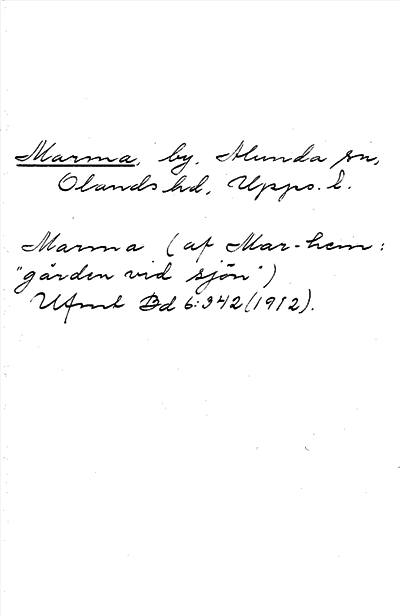 Marma, by. Alunda sn,
Olands hd, Upps. l.
Marma (af Mar-hem:
"gården vid sjön")
Ufmt Bd 6:342 (1912).